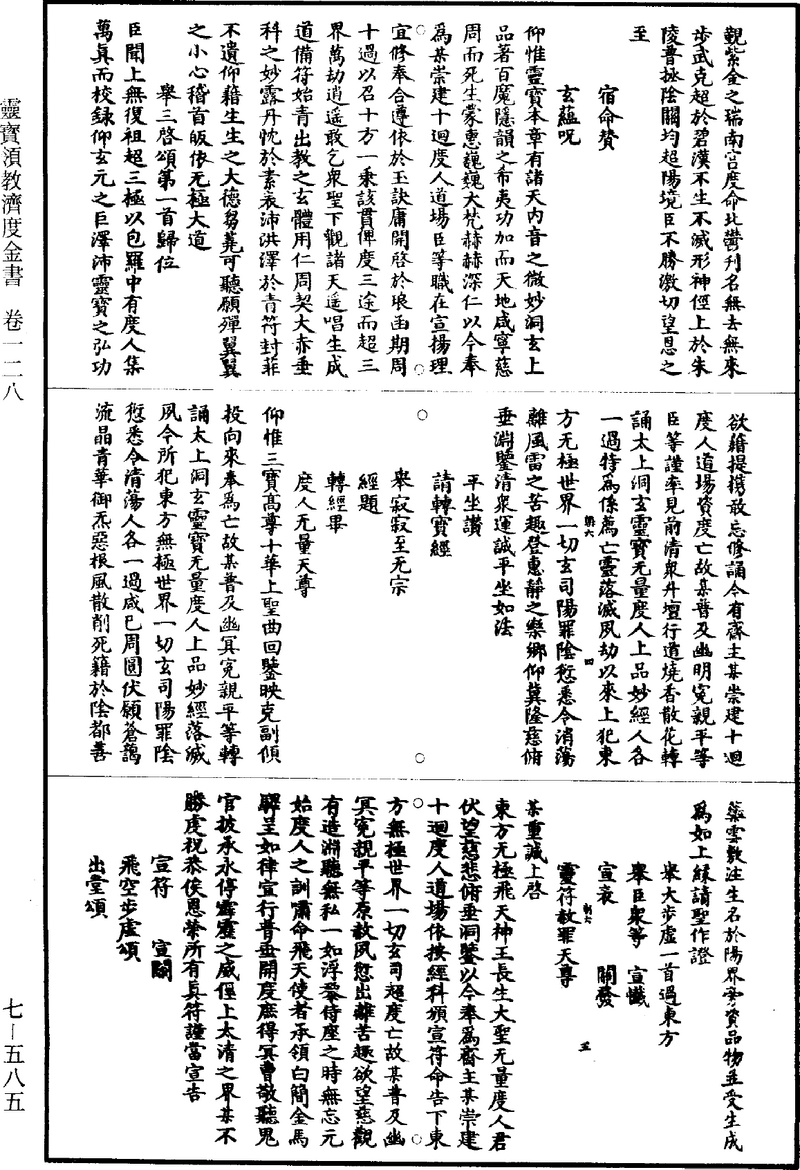 觀紫金之瑞南宮度命北酆刊名無去無來
步武克超於碧漢不生不滅形神徑上於朱
陵普拯陰關均超陽境臣不勝激切望恩之
至
宿命贊
玄蘊呪
仰惟靈寶本章有諸天内音之微妙洞玄上
品著百魔隱韻之希夷功加而天地咸寧慈
周而死生蒙惠巍巍大梵赫赫深仁以今奉
爲某崇建十迴度人道場臣等職在宣揚理
宜修奉合遵依於玉訣庸開啓於琅函期周
十過以召十方一乘該貫俾度三途而超三
界萬劫逍遥敢乞衆聖下觀諸天遥唱生成
道備符始青出教之玄體用仁周契大赤垂
科之妙露丹忱於素衷沛洪澤於青符封菲
不遺仰藉生生之大德芻蕘可聽願殫翼翼
之小心稽首皈依无極大道
舉三啓頌第一首歸位
臣聞上無復祖超三極以包羅中有度人集
萬真而校録仰玄元之巨澤沛靈寶之弘功
欲藉提攜敢忘修誦今有齋主某崇建十迴
度人道場資度亡故某普及幽明冤親平等
臣等謹率見前清衆升壇行道燒香散花轉
誦太上洞玄靈寶无量度人上品妙經人各
一過特爲係薦亡靈落滅夙劫以來上犯東
方无極世界一切玄司陽罪陰愆悉令消蕩
第六
四
離風雷之苦趣登惠靜之樂鄉仰冀隆慈俯
垂淵鑒清衆運誠平坐如法
平坐讚
請轉寶經
舉寂寂至无宗
經題
轉經畢
度人无量天尊
仰惟三寶高尊十華上聖曲回鑒映克副傾
投向來奉爲亡故某普及幽冥冤親平等轉
誦太上洞玄靈寶无量度人上品妙經落滅
夙令所犯東方無極世界一切玄司陽罪陰
愆悉令清蕩人各一過咸已周圓伏願蒼靄
流晶青華御炁惡根風散削死籍於陰都善
蘂雪敷注生名於陽界旁資品物並受生成
爲如上緣請聖作證
舉大步虛一首過東方
舉臣衆等　宣懺
宣衷　關發
靈符赦罪天尊
五
某重誠上啓
東方无極飛天神王長生大聖无量度人君
伏望慈悲俯垂洞鑒以今奉爲齋主某崇建
十迴度人道場依按經科頒宣符命告下東
方無極世界一切玄司超度亡故某普及幽
冥冤親平等原赦夙愆出離苦趣欲望慈觀
有造淵聽無私一如浮黎侍座之時無忘元
始度人之訓嘯命飛天使者承領白簡金馬
驛呈如律宣行普垂開度庶得冥曹敬聽鬼
官披承永停霹靂之威徑上太清之界某不
勝虔祝恭俟恩榮所有真符謹當宣告
宣符　宣關
飛空步虛頌
出堂頌
靈寶領教濟度金書　卷一二八
七—五八五